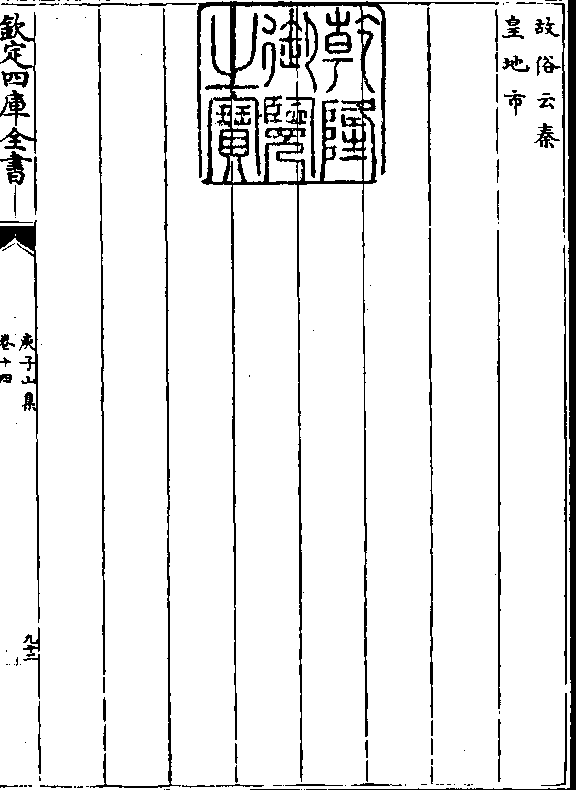 故俗云秦
皇地市
乾隆
御覽
之寶
欽定四庫全書
庾子山集
卷十四
九十二